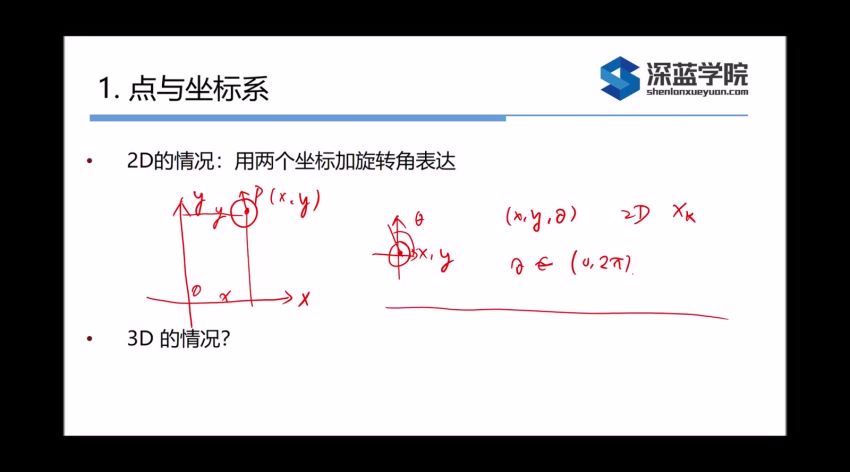 深蓝学院
shenlanxueyuan.com
1. 点与坐标系
• 2D的情况：用两个坐标加旋转角表达
y P(x,y)
y
O x X
θ
x,y
(x,y,θ) 2D Xk
θ ∈ (0,2π)
• 3D 的情况？